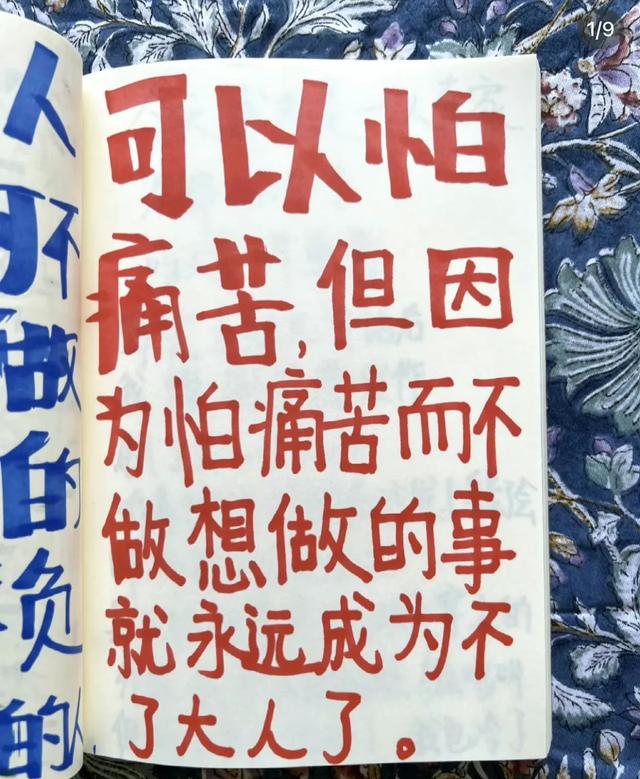 1/9
可以怕
痛苦,但因
为怕痛苦而不
做想做的事
就永远成为不
了大人了。
人
不
做
的
负
的人